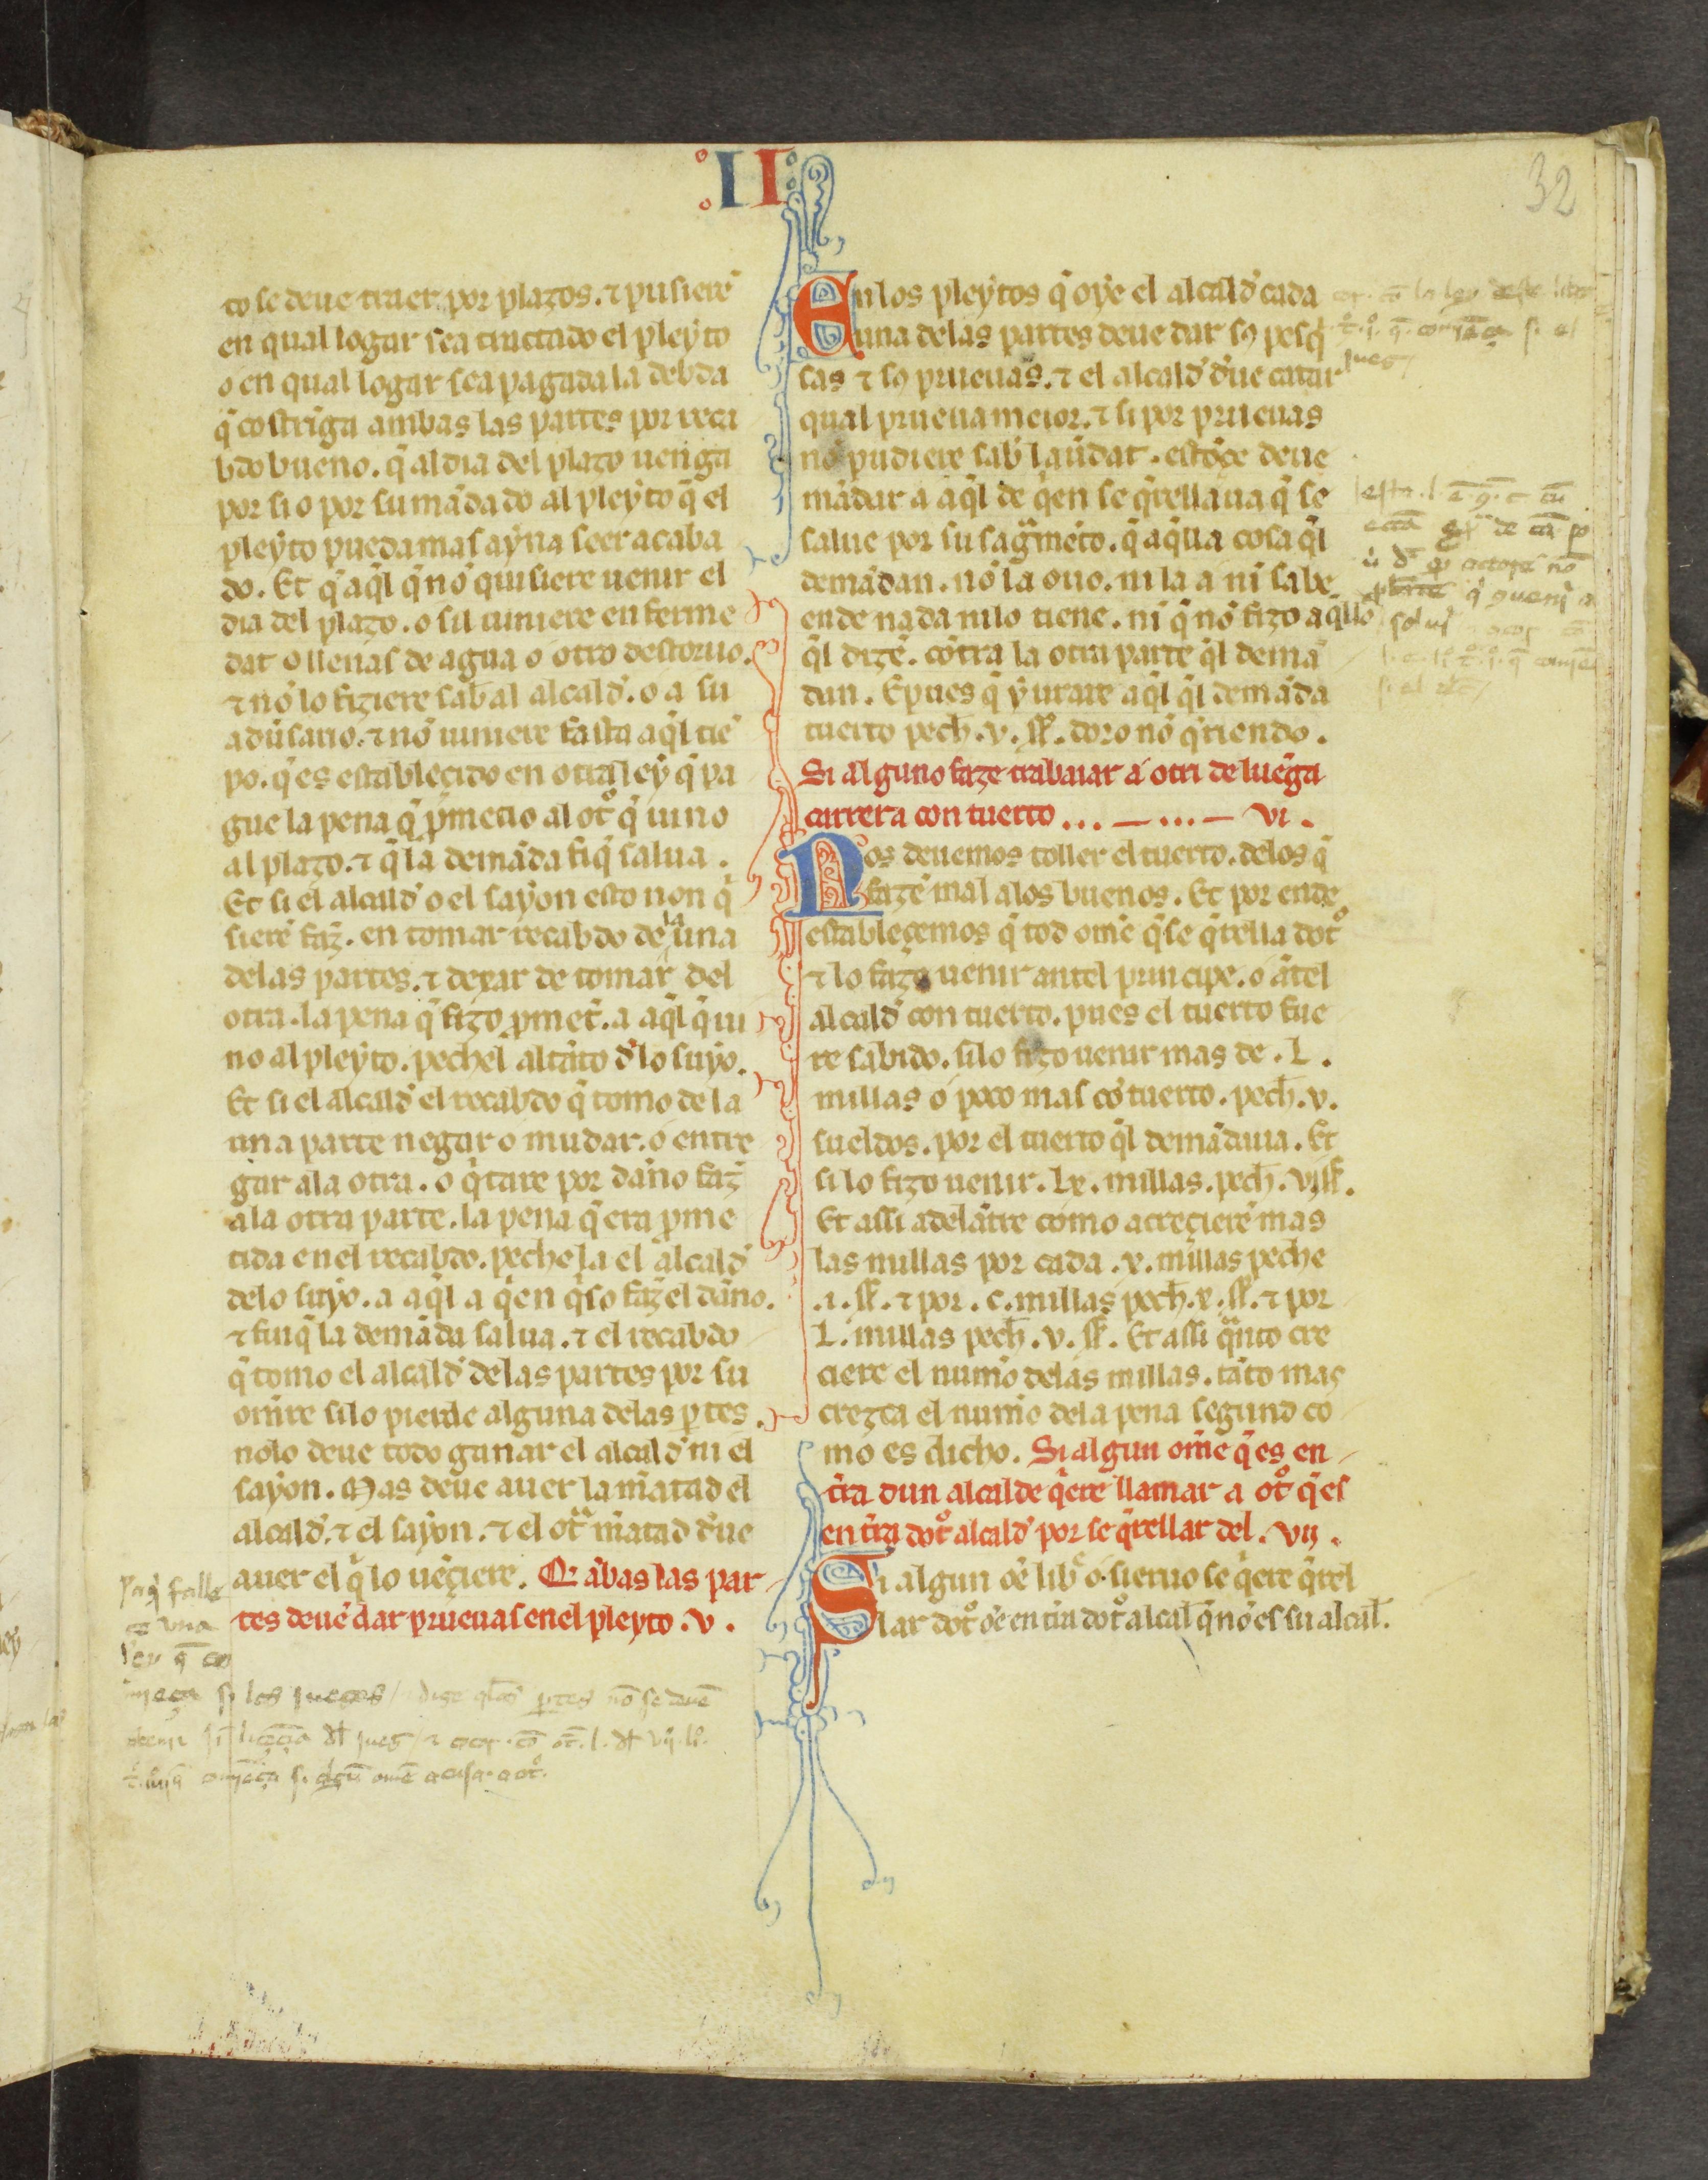 II
32
to se deue traer por plazos. ⁊ pusierē
en qual logar sea tractado el pleyto
o en qual logar sea pagada la debda
q̄ costrīga ambas las partes por reca
bdo bueno. q̄ al dia del plazo uenga
por si o por su mādado al pleyto q̄ el
pleyto pueda mas ayna seer acaba
do. Et q̄ aq̄l q̄ nō quisiere uenir el
dia del plazo. o sil tuuiere enferme
dat o llenas de agua o otro destoruo.
⁊ nō lo fiziere sab̄ al alcald̄. o a su
adūsario. ⁊ nō uiniere fasta aq̄l tiē
po. q̄ es establecido en otra ley q̄ pa
gue la pena q̄ p̄metio al ot̊ q̄ uino
al plazo. ⁊ q̄ la demāda fiq̄ salua.
Et si el alcald̄ o el sayon esto non q̄
sierē faz̄. en tomar recabdo de la una
delas partes. ⁊ dexar de tomar del
otra. la pena q̄ fizo p̄met̄. a aq̄l q̄ ui
no al pleyto. pechel altāto d̄ lo suyo.
Et si el alcald̄ el recabdo q̄ tomo de la
una parte negar o mudar. o entre
gar ala otra. o q̄tare por daño faz̄
ala otra parte. la pena q̄ era p̄me
tida en el recabdo. pechela el alcald̄
delo suyo. a aq̄l a q̄en q̄so faz̄ el daño.
⁊ finq̄ la demāda salua. ⁊ el recabdo
q̄ tomo el alcald̄ delas partes por su
om̄re silo pierde alguna delas p̄tes.
nolo deue todo ganar el alcald̄ ni el
sayon. Mas deue auer la m̄atad el
alcald̄. ⁊ el sayon. ⁊ el ot̄ m̄atad d̄ue
auer el q̄ lo uēçiere. Q̄ ābas las par
tes deuē dar prueuas en el pleyto. v.
En los pleytos q̄ oye el alcald̄ cada
una delas partes deue dar sꝯ pesq̄
sas ⁊ sꝯ prueuas. ⁊ el alcald̄ d̄ue catar
qual prueua meior. ⁊ si por prueuas
nō pudiere sab̄ la ūdat. estōçe deue
mādar a aq̄l de q̄en se q̄rellaua q̄ se
salue por su sag̃mēto. q̄ aq̄lla cosa q̄l
demādan. nō la ouo. ni la a ni sabe
ende nada nilo tiene. ni q̄ nō fizo aq̄llo
q̄l dizē. cōtra la otra parte q̄l demā
dan. E pues q̄ yurare aq̄l q̄l demāda
tuerto pech̄. v. ss̄. doro nō q̄riendo.
Si alguno faze trabaiar a otri de luenga
carrera con tuerto ... — ... — vi.
Nos deuemos toller el tuerto. delos q̄
fazē mal alos buenos. Et por ende
establecemos q̄ tod omē q̄ se q̄rella dot̊
⁊ lo faze uenir antel principe. o ātel
alcald̄ con tuerto. pues el tuerto fue
re sabido. silo fizo uenir mas de. L.
millas o poco mas cō tuerto. pech̄. v.
sueldos. por el tuerto q̄l demādaua. Et
si lo fizo uenir. lx. millas. pech̄. vj ss̄.
Et assi adelātre como acreçierē mas
las millas por cada. x. millas peche
.i. ss̄. ⁊ por. c. millas pech̄. x. ss̄. ⁊ por
L. millas pech̄. v. ss̄. Et assi q̃nto cre
ciere el numō delas millas. tāto mas
crezca el numō dela pena segund co
mo es dicho. Si algun om̄e q̄ es en
tr̄ra dun alcalde q̄ere llamar a ot̊ q̄ es
en tr̄ra dot̊ alcald̄ por se q̄rellar del. vij.
Si algun oē lib̄ o sieruo se q̄ere q̄rel
lar dot̊ oē en tr̄ra dot̊ alcal̄ q̄ nō es su alcal̄.
falle
una
ley q̄
si los jueces